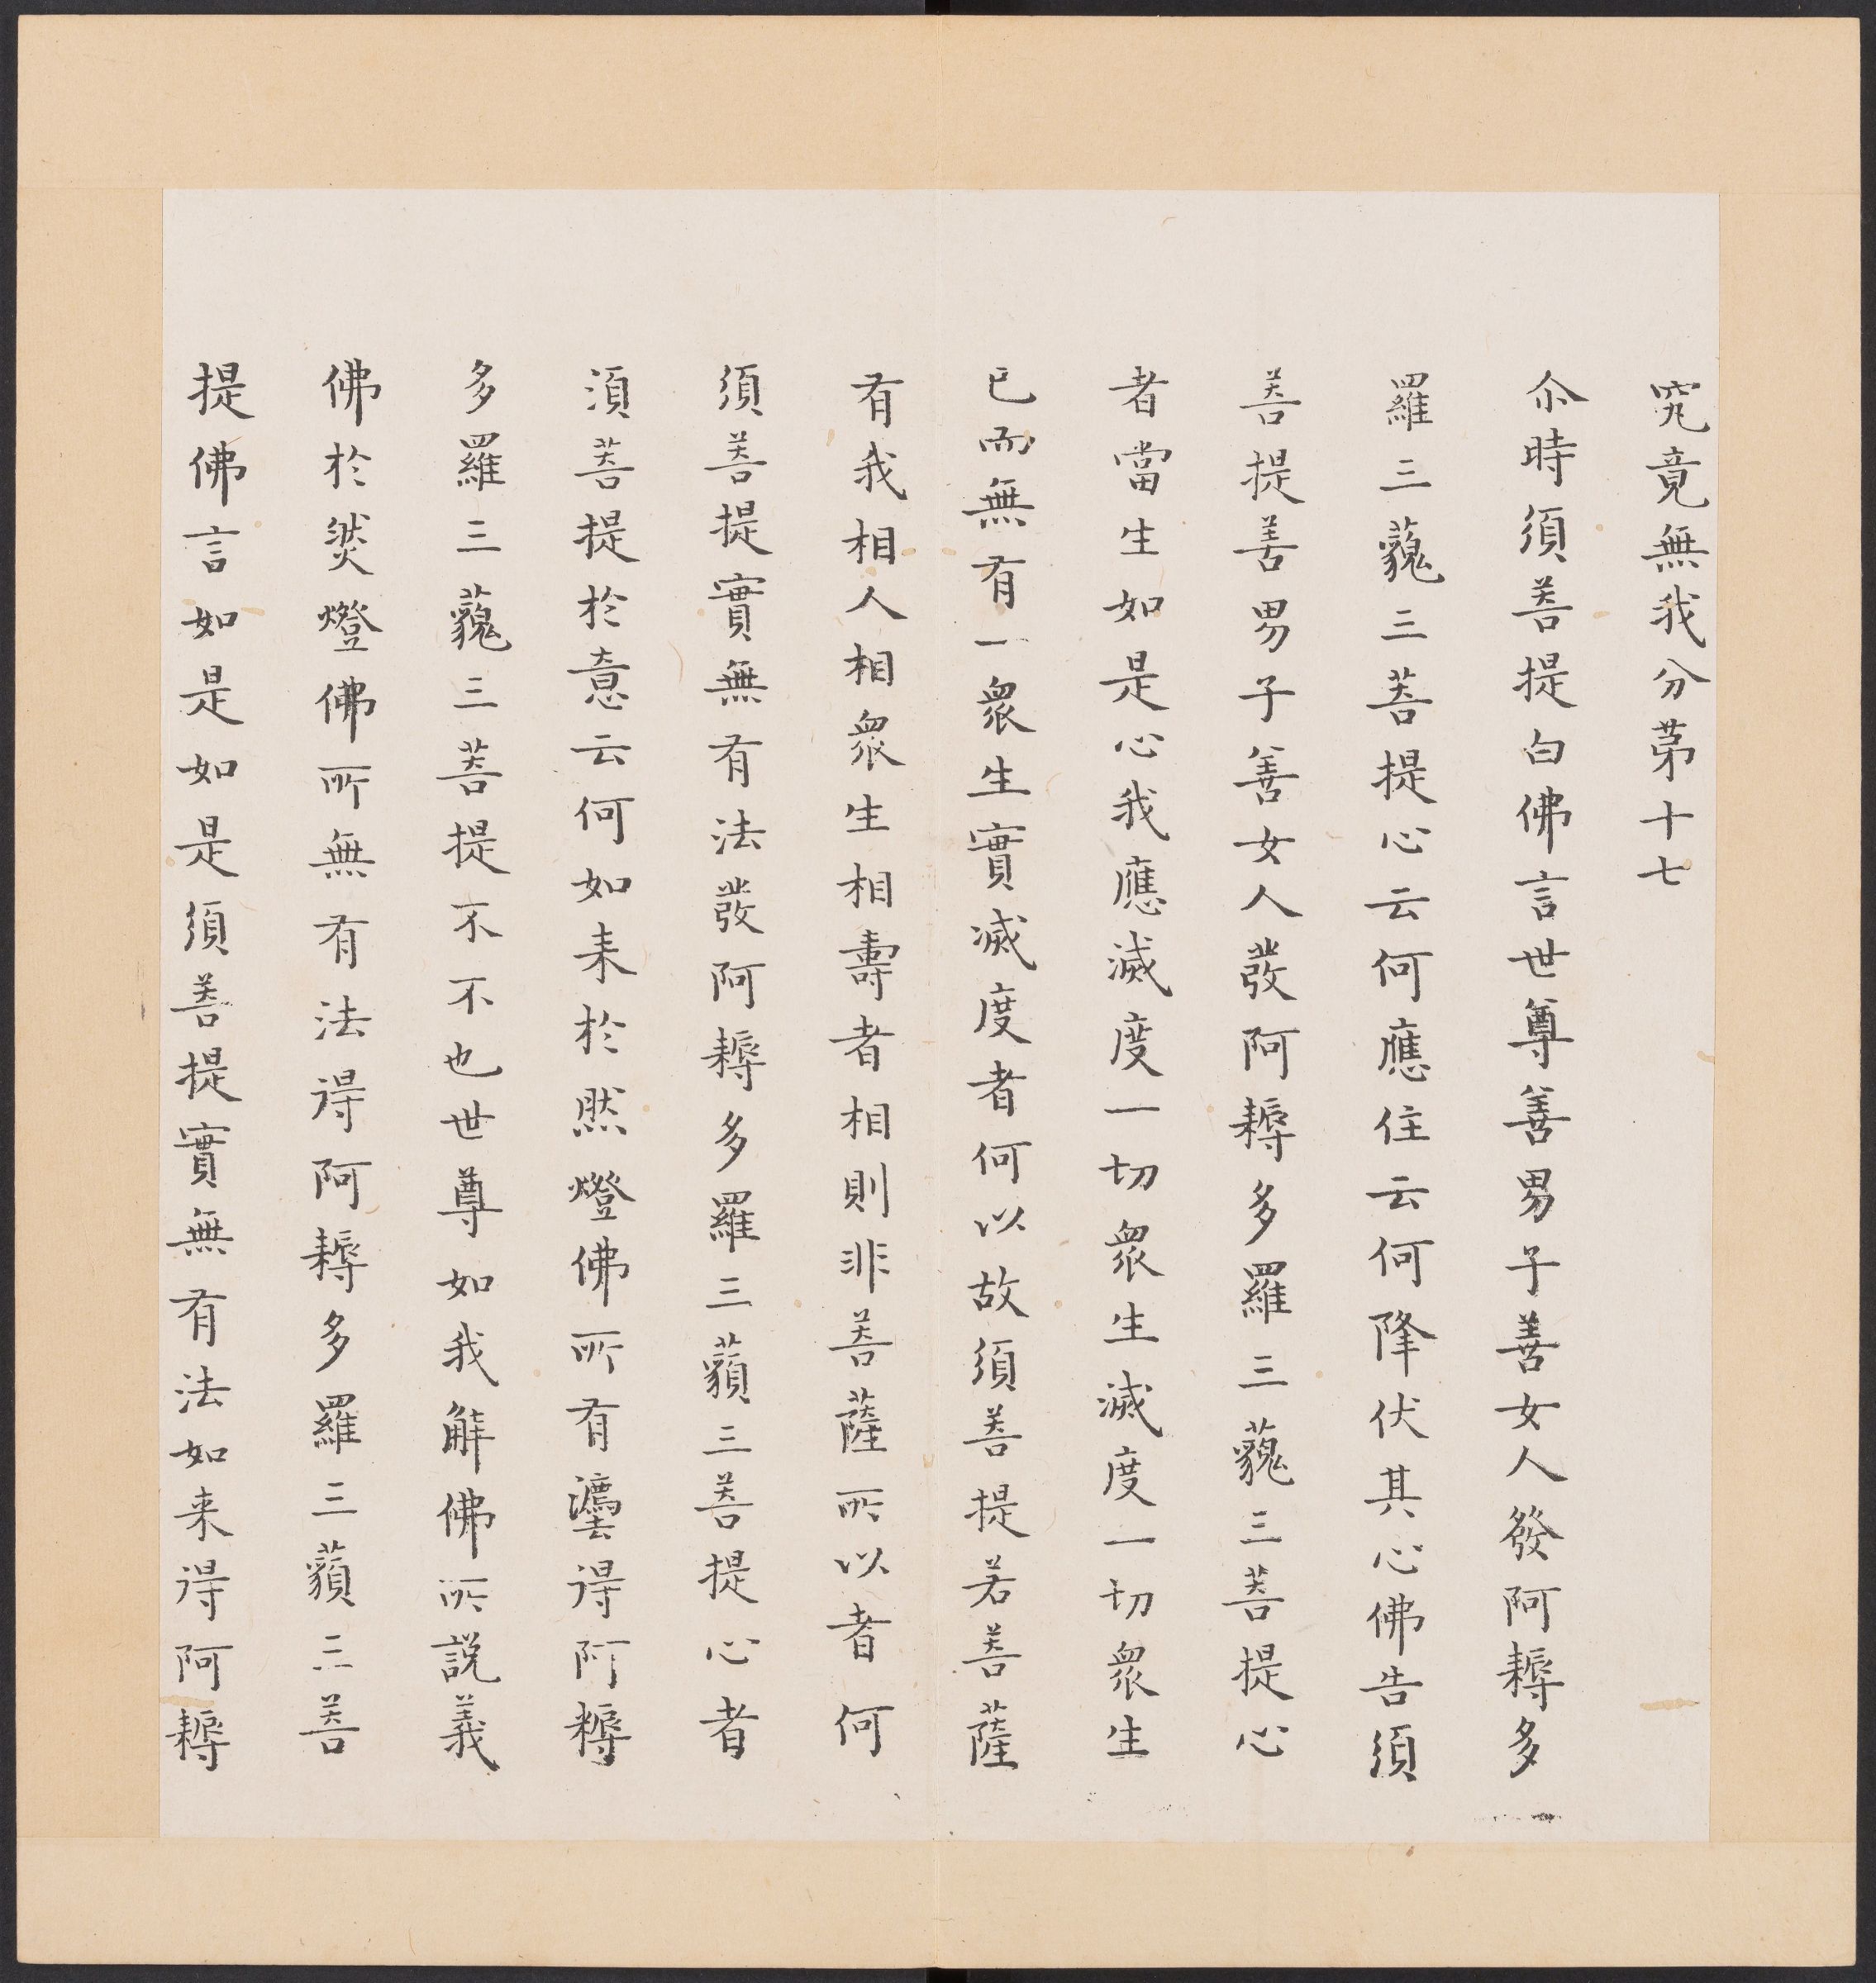 究竟無我分苐十七
尒時須菩提白佛言世尊善男子善女人發阿耨多
羅三藐三菩提心云何應住云何降伏其心佛告須
菩提善男子善女人發阿耨多羅三藐三菩提心
者當生如是心我應滅度一切衆生滅度一切衆生
已而無有一衆生實滅度者何以故須菩提若菩薩
有我相人相衆生相壽者相則非菩薩所以者何
須菩提實無有法發阿耨多羅三藐三菩提心者
須菩提於意云何如来於然燈佛所有灋得阿耨
多羅三藐三菩提不不也世尊如我解佛所説義
佛於然燈佛所無有法得阿耨多羅三藐三菩
提佛言如是如是須菩提實無有法如来得阿耨